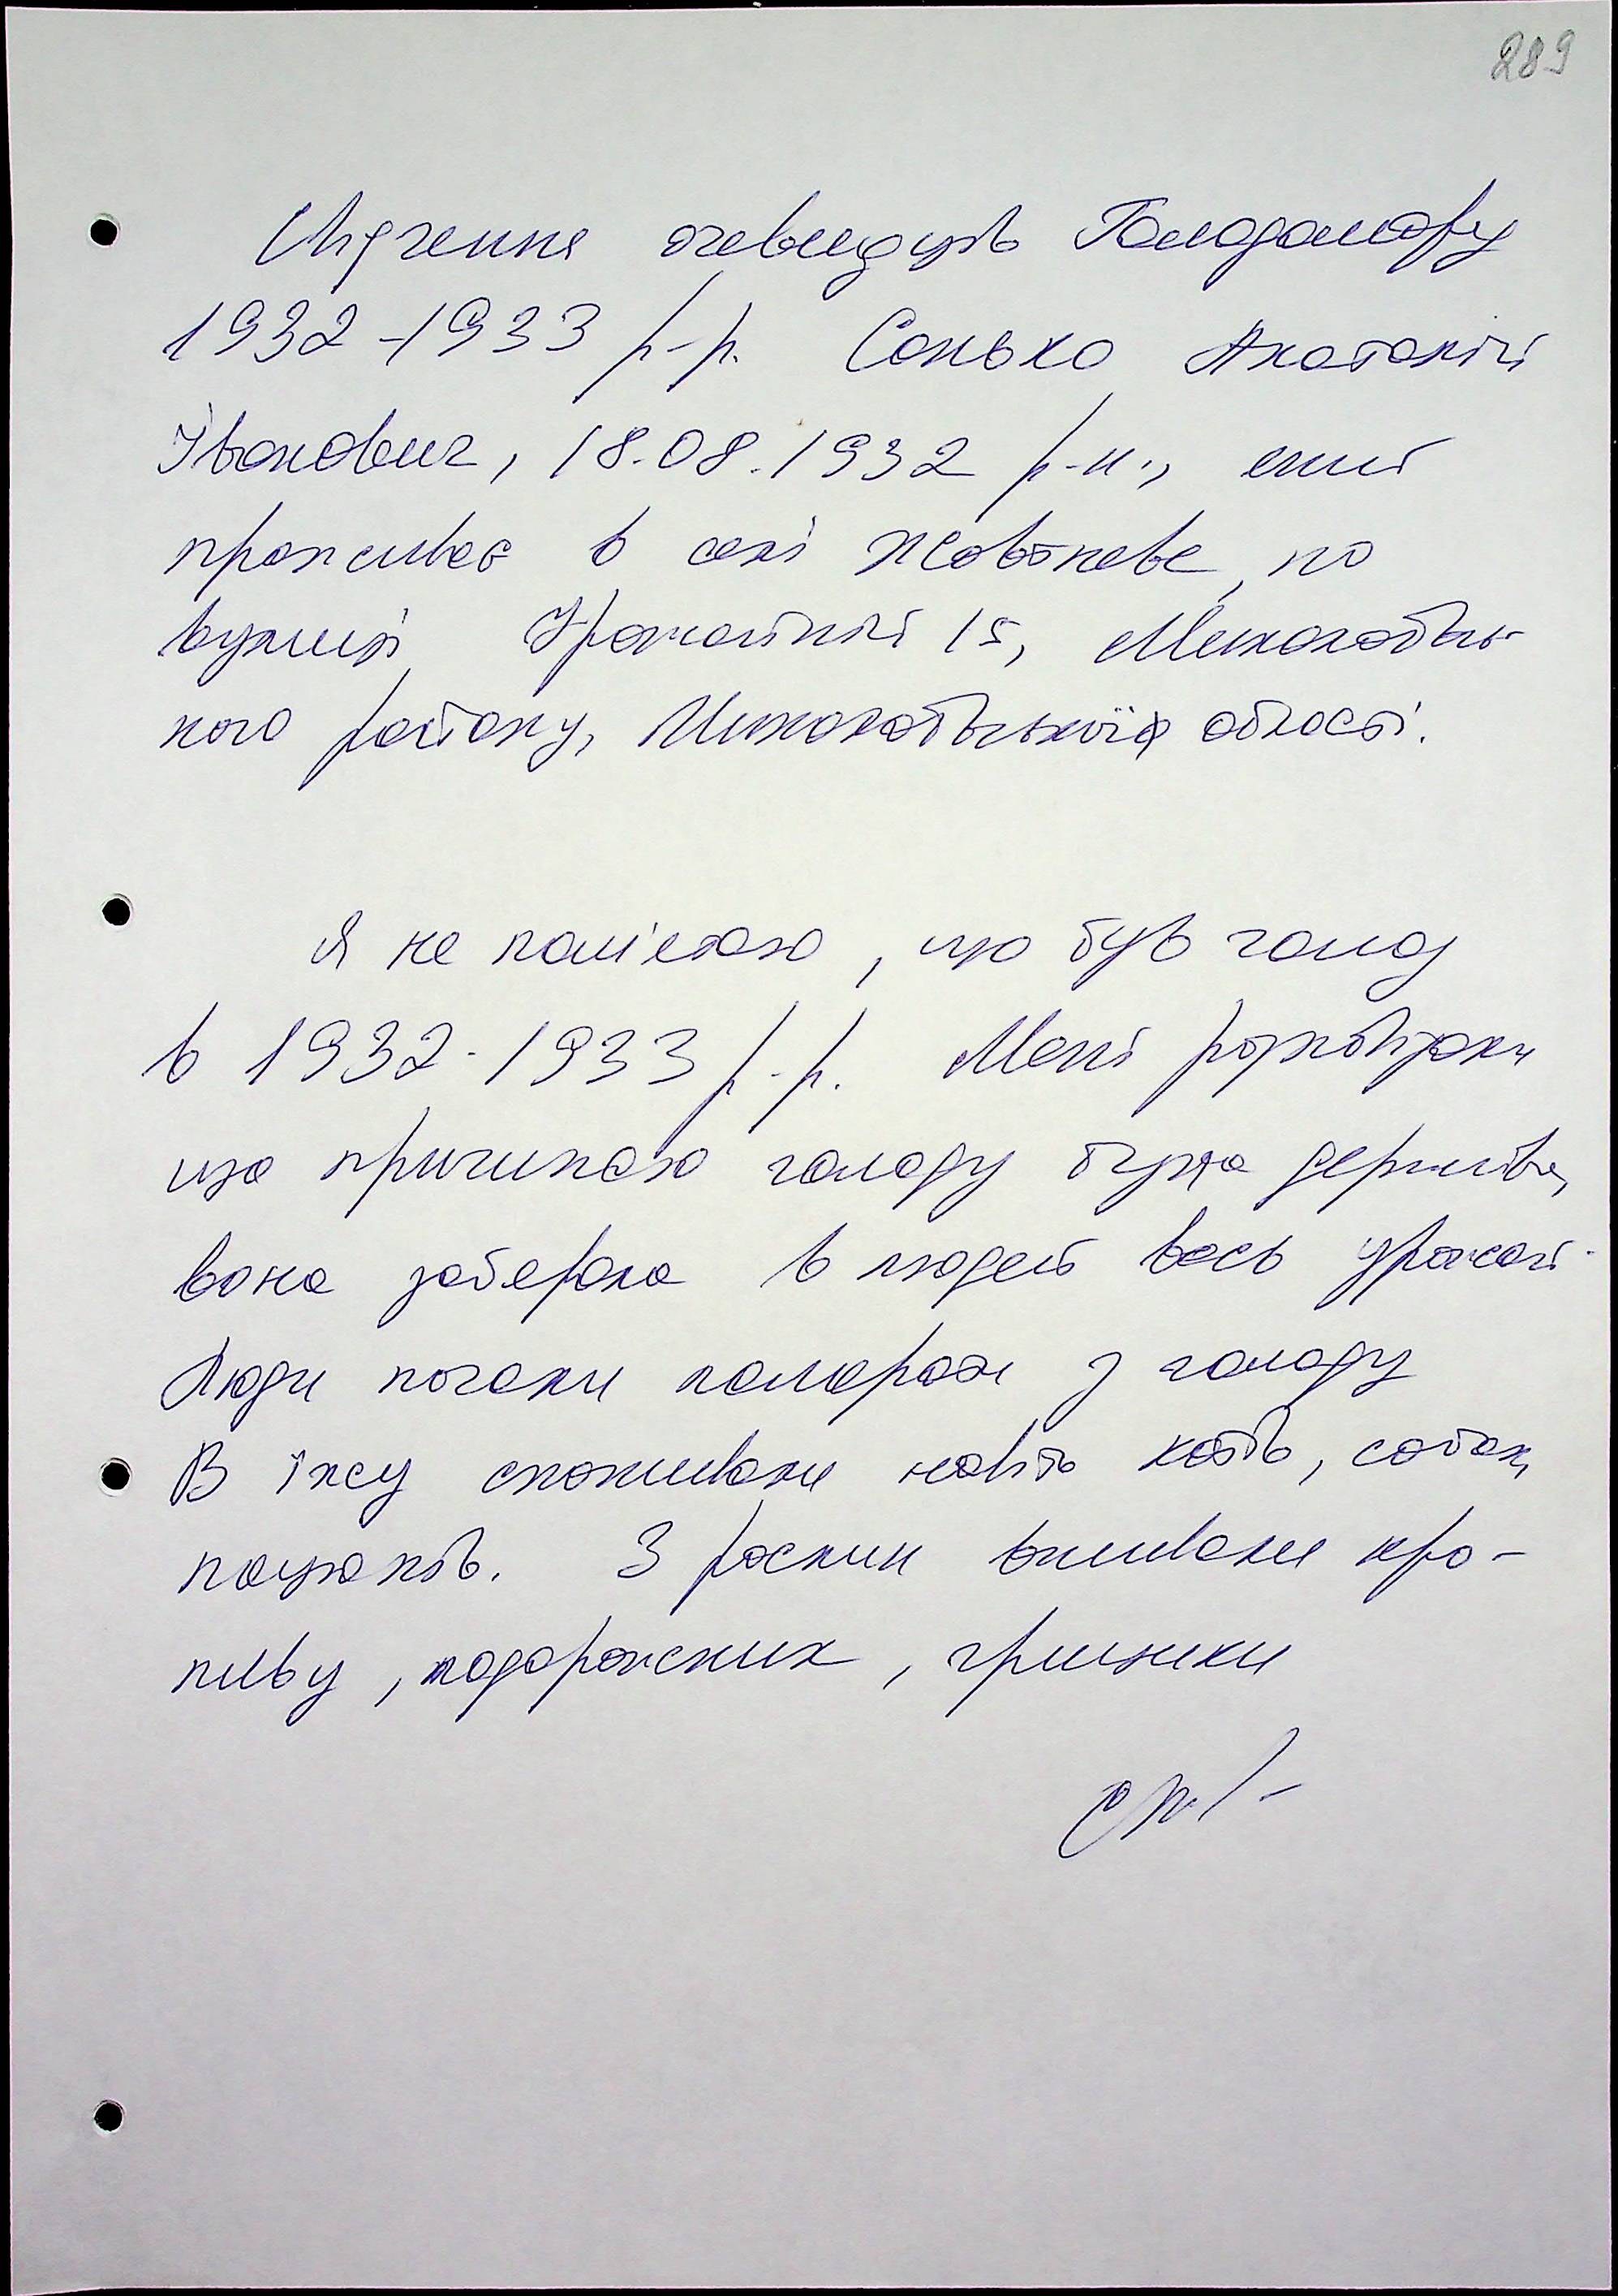 289
Свідчення очевидців Голодомору
1932-1933 р-р. Сонько Анатолій
Іванович, 18.08.1932 р-н., який
проживає в селі Жовтневе, по
вулиці Урожайній 15, Миколаївсь-
кого району, Миколаївської області.
Я не пам'ятаю, що був голод
в 1932-1933 р-р. Мені розповідали
що причиною голоду була держава,
вона забирала в людей весь урожай.
Люди почали помирати з голоду
В їжу споживали навіть котів, собак,
пацюків. З рослин вживали кро-
пиву, подорожник, грицики